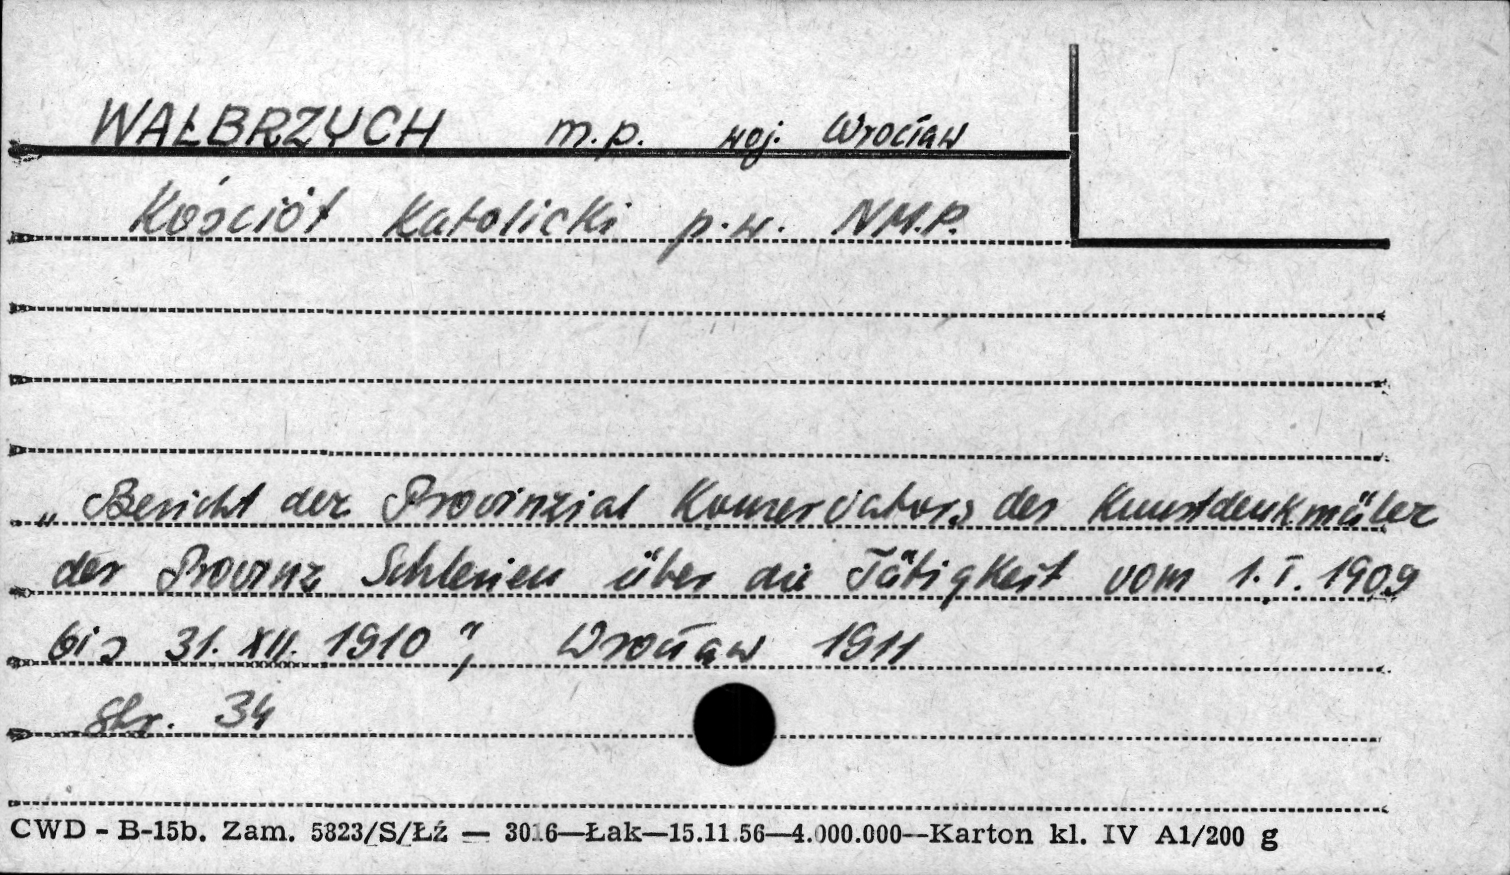 WAŁBRZYCH m.p. woj. Wrocław
Kościół Katolicki p.w. NM.P.
„Bericht der Provinzial Konservators der Kunstdenkmäler
der Provinz Schlesien über die Tätigkeit vom 1.I.1909
bis 31.XII.1910", Wrocław 1911
Str. 34
CWD - B-15b. Zam. 5823/S/Łź — 3016—Łak—15.11.56—4.000.000--Karton kl. IV A1/200 g